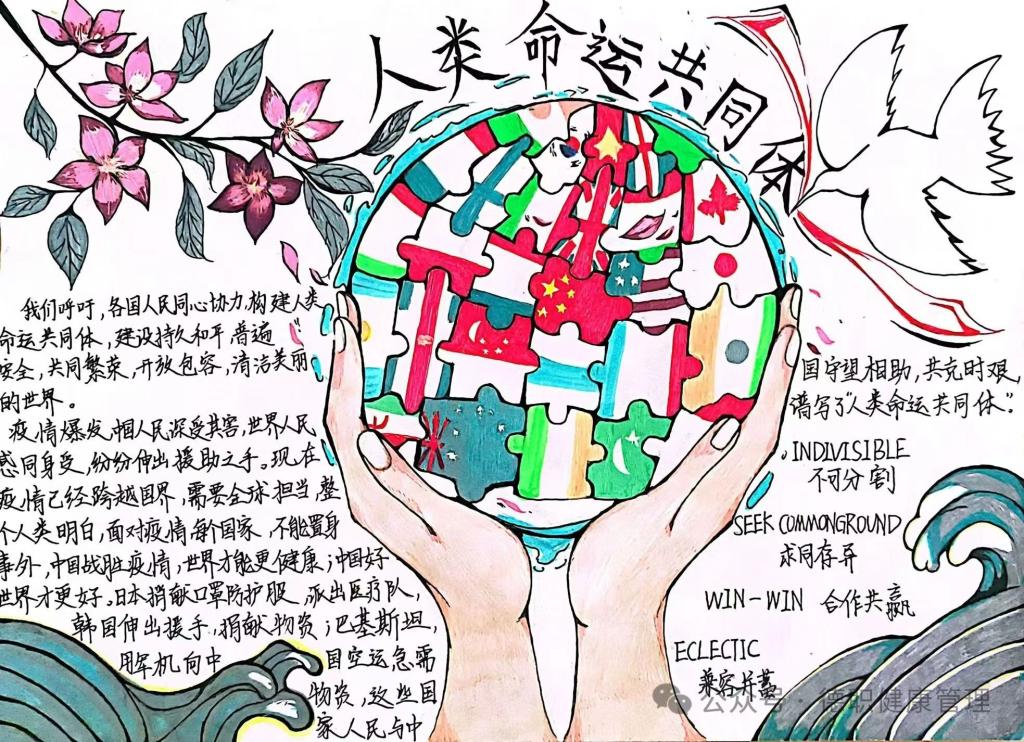 人类命运共同体
我们呼吁,各国人民同心协力,构建人类
命运共同体,建设持久和平、普遍
安全,共同繁荣,开放包容,清洁美丽
的世界。
疫情爆发,中国人民深受其害,世界人民
感同身受,纷纷伸出援助之手。现在
疫情已经跨越国界,需要全球担当,整
个人类明白,面对疫情每个国家,不能置身
事外,中国战胜疫情,世界才能更健康;中国好
世界才更好。日本捐献口罩防护服,派出医疗队,
韩国伸出援手,捐献物资;巴基斯坦,
用军机向中
国空运急需
物资,这些国
家人民与中
国守望相助,共克时艰,
谱写了“人类命运共同体”.
INDIVISIBLE
不可分割
SEEK COMMONGROUND
求同存异
WIN-WIN 合作共赢
ECLECTIC
兼容并蓄
公众号·德职健康管理